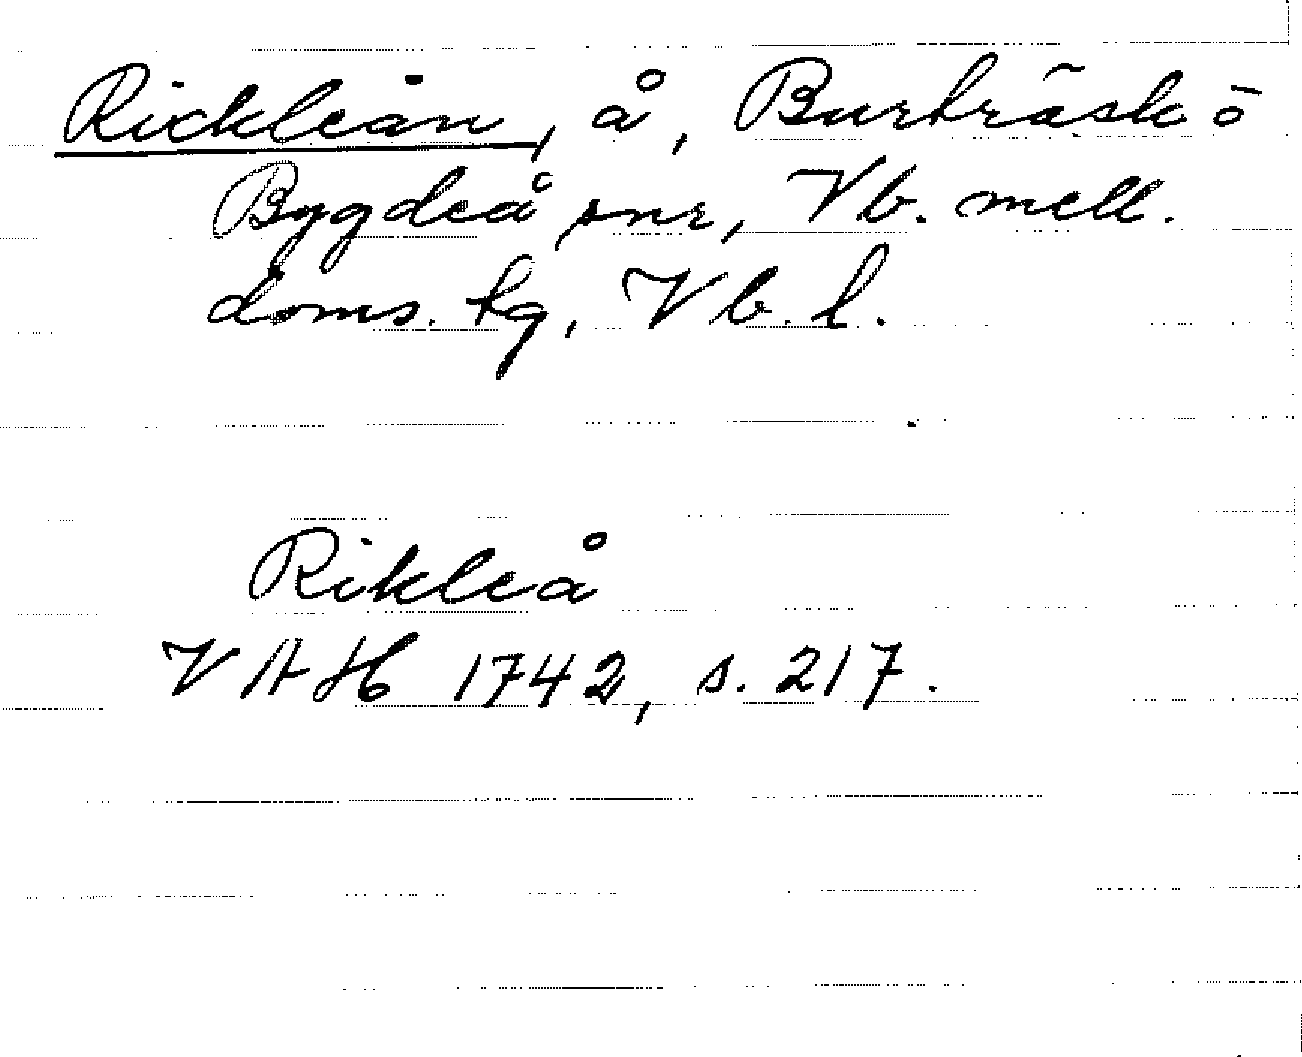 Rickleån, å, Burträsk o
Bygdeå snr, Vb. mell.
doms. sg, Vb. l.
Rikleå
VAH 1742, s. 217.